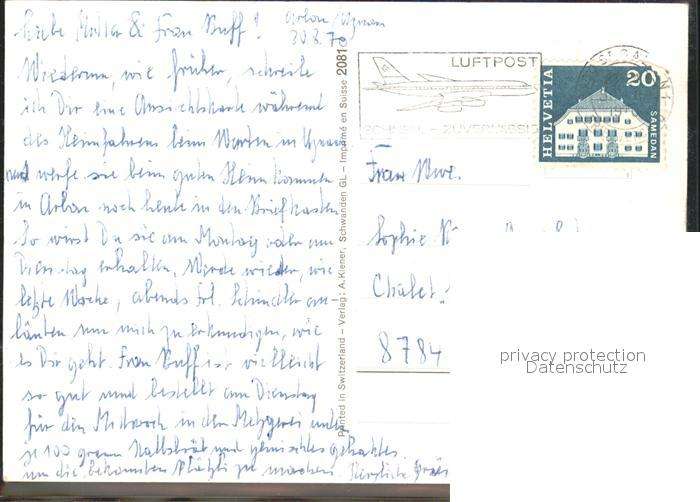 Liebe Mutter & Frau Ruff! Arbon/Uznam
30.8.70
Wiederum, wie früher, schreibe
ich Dir eine Ansichtskarte während
des Heimfahrens beim Warten in Uznam
und werfe sie beim guten Heimkommen
in Arbon noch heute in den Briefkasten
So wirst Du sie am Montag oder am
Dienstag erhalten. Werde wieder, wie
letzte Woche, abends Frl. Schindler an-
läuten um mich zu erkundigen, wie
es Dir geht. Frau Ruff ist vielleicht
so gut und bestellt am Dienstag
für den Mittwoch in der Metzgerei
je 100 gramm Kalbsbrät und gemischtes gehacktes
um die bekannten Plätzli zu machen. Herzliche Grüs
Printed in Switzerland – Verlag: A. Kiener, Schwanden GL – Imprimé en Suisse 2081
LUFTPOST
SCHNELL - ZUVERLÄSSIG
HELVETIA
20
SAMEDAN
Frau Wwe.
Sophie
Chalet
8784
privacy protection
Datenschutz